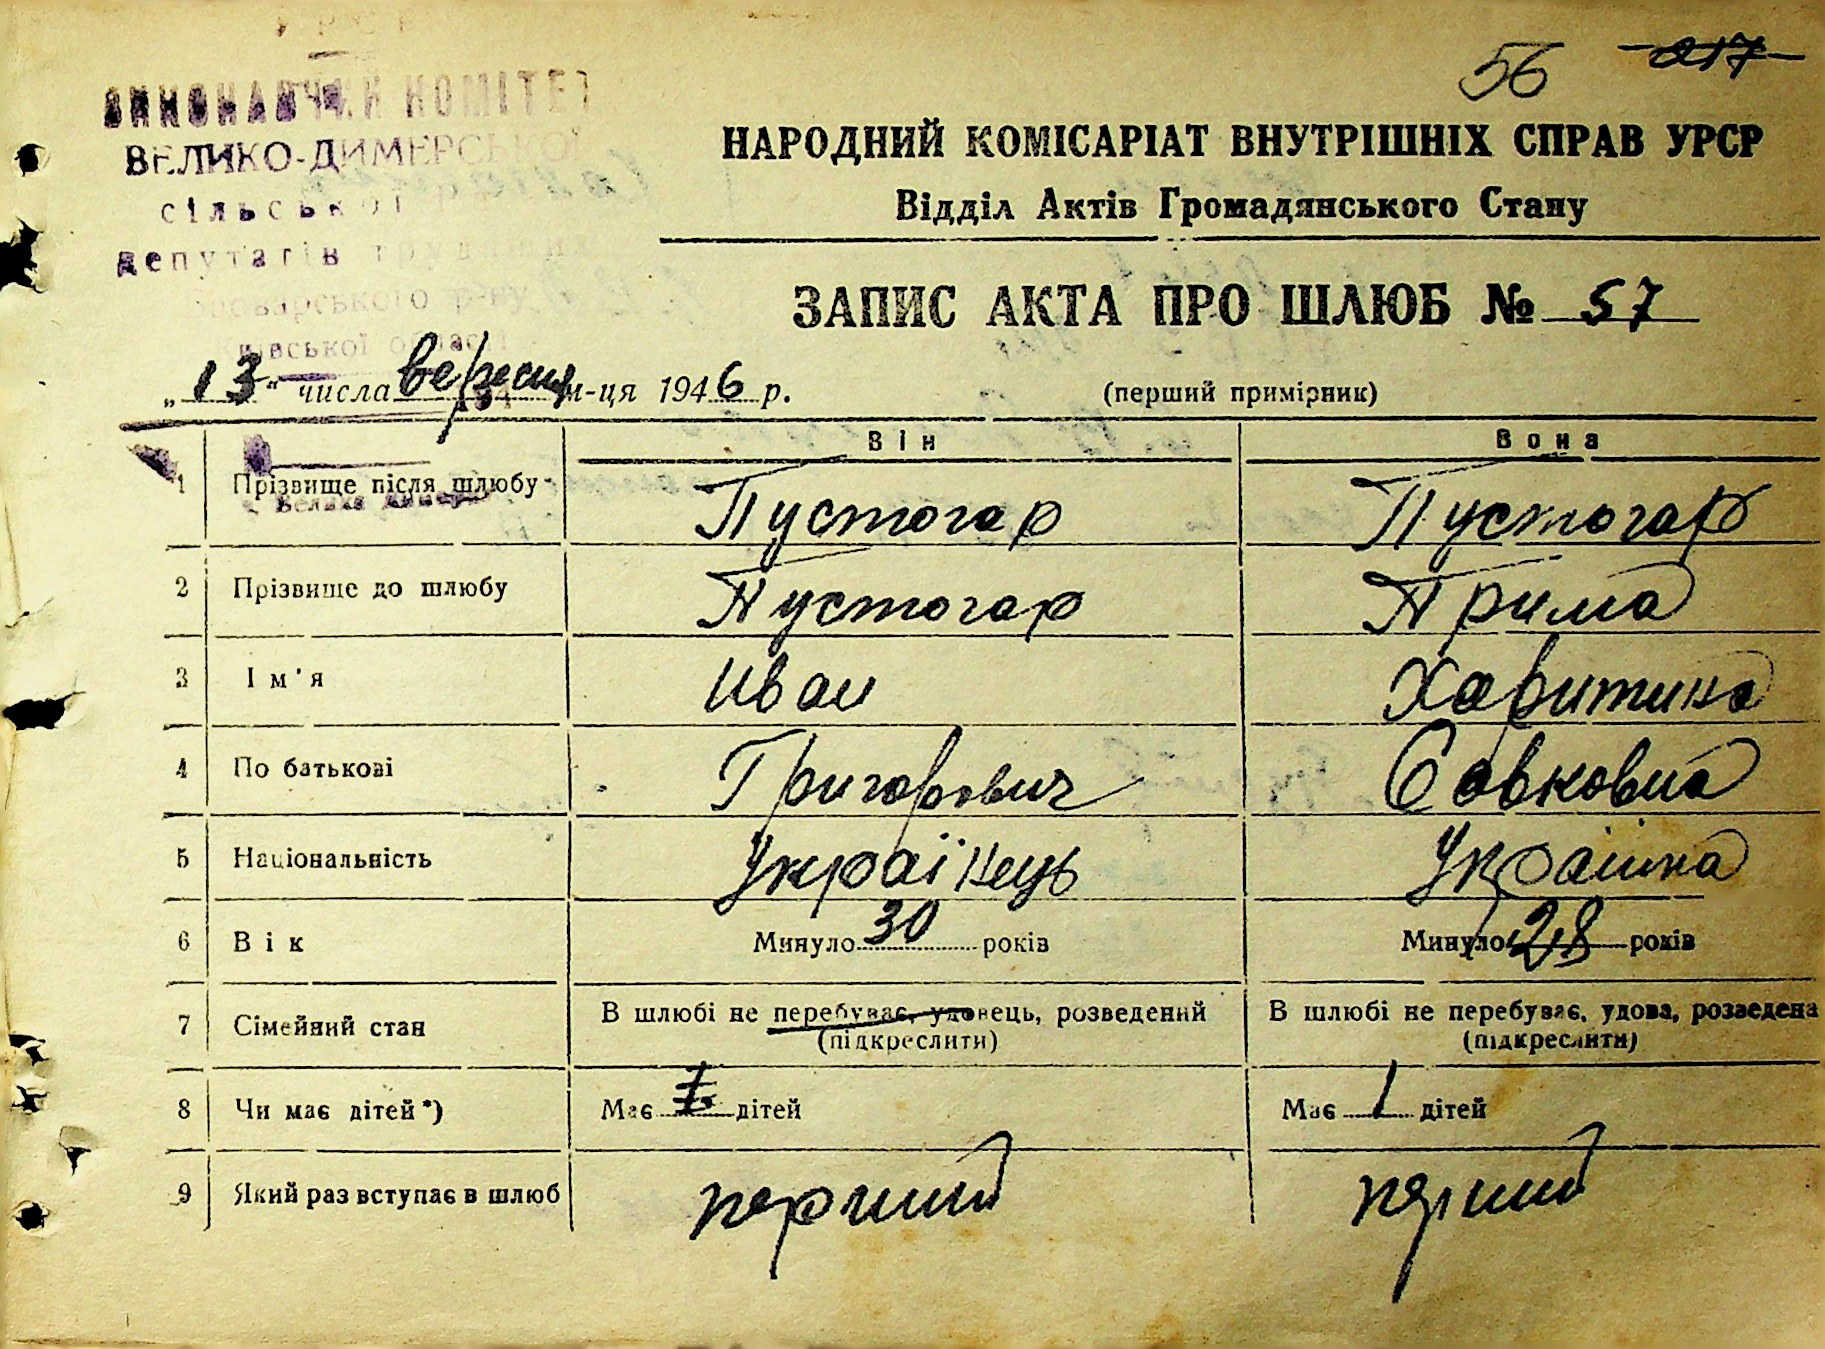 УРСР
ВИКОНАВЧИЙ КОМІТЕТ
ВЕЛИКО-ДИМЕРСЬКОЇ
сільської
депутатів трудящих
Броварського р-ну
Київської області
56 217
НАРОДНИЙ КОМІСАРІАТ ВНУТРІШНІХ СПРАВ УРСР
Відділ Актів Громадянського Стану
ЗАПИС АКТА ПРО ШЛЮБ № 57
„13“ числа вересня м-ця 1946 р.
(перший примірник)
Він Вона
1 Прізвище після шлюбу Пустогар Пустогар
Велика Димерка
2 Прізвище до шлюбу Пустогар Прима
3 Ім'я Иван Харитина
4 По батькові Григорович Савковна
5 Національність Українець Українка
6 Вік Минуло 30 років Минуло 28 років
7 Сімейний стан В шлюбі не перебуває, удовець, розведений В шлюбі не перебуває, удова, розведена
(підкреслити) (підкреслити)
8 Чи має дітей*) Має дітей Має 1 дітей
9 Який раз вступає в шлюб перший перший